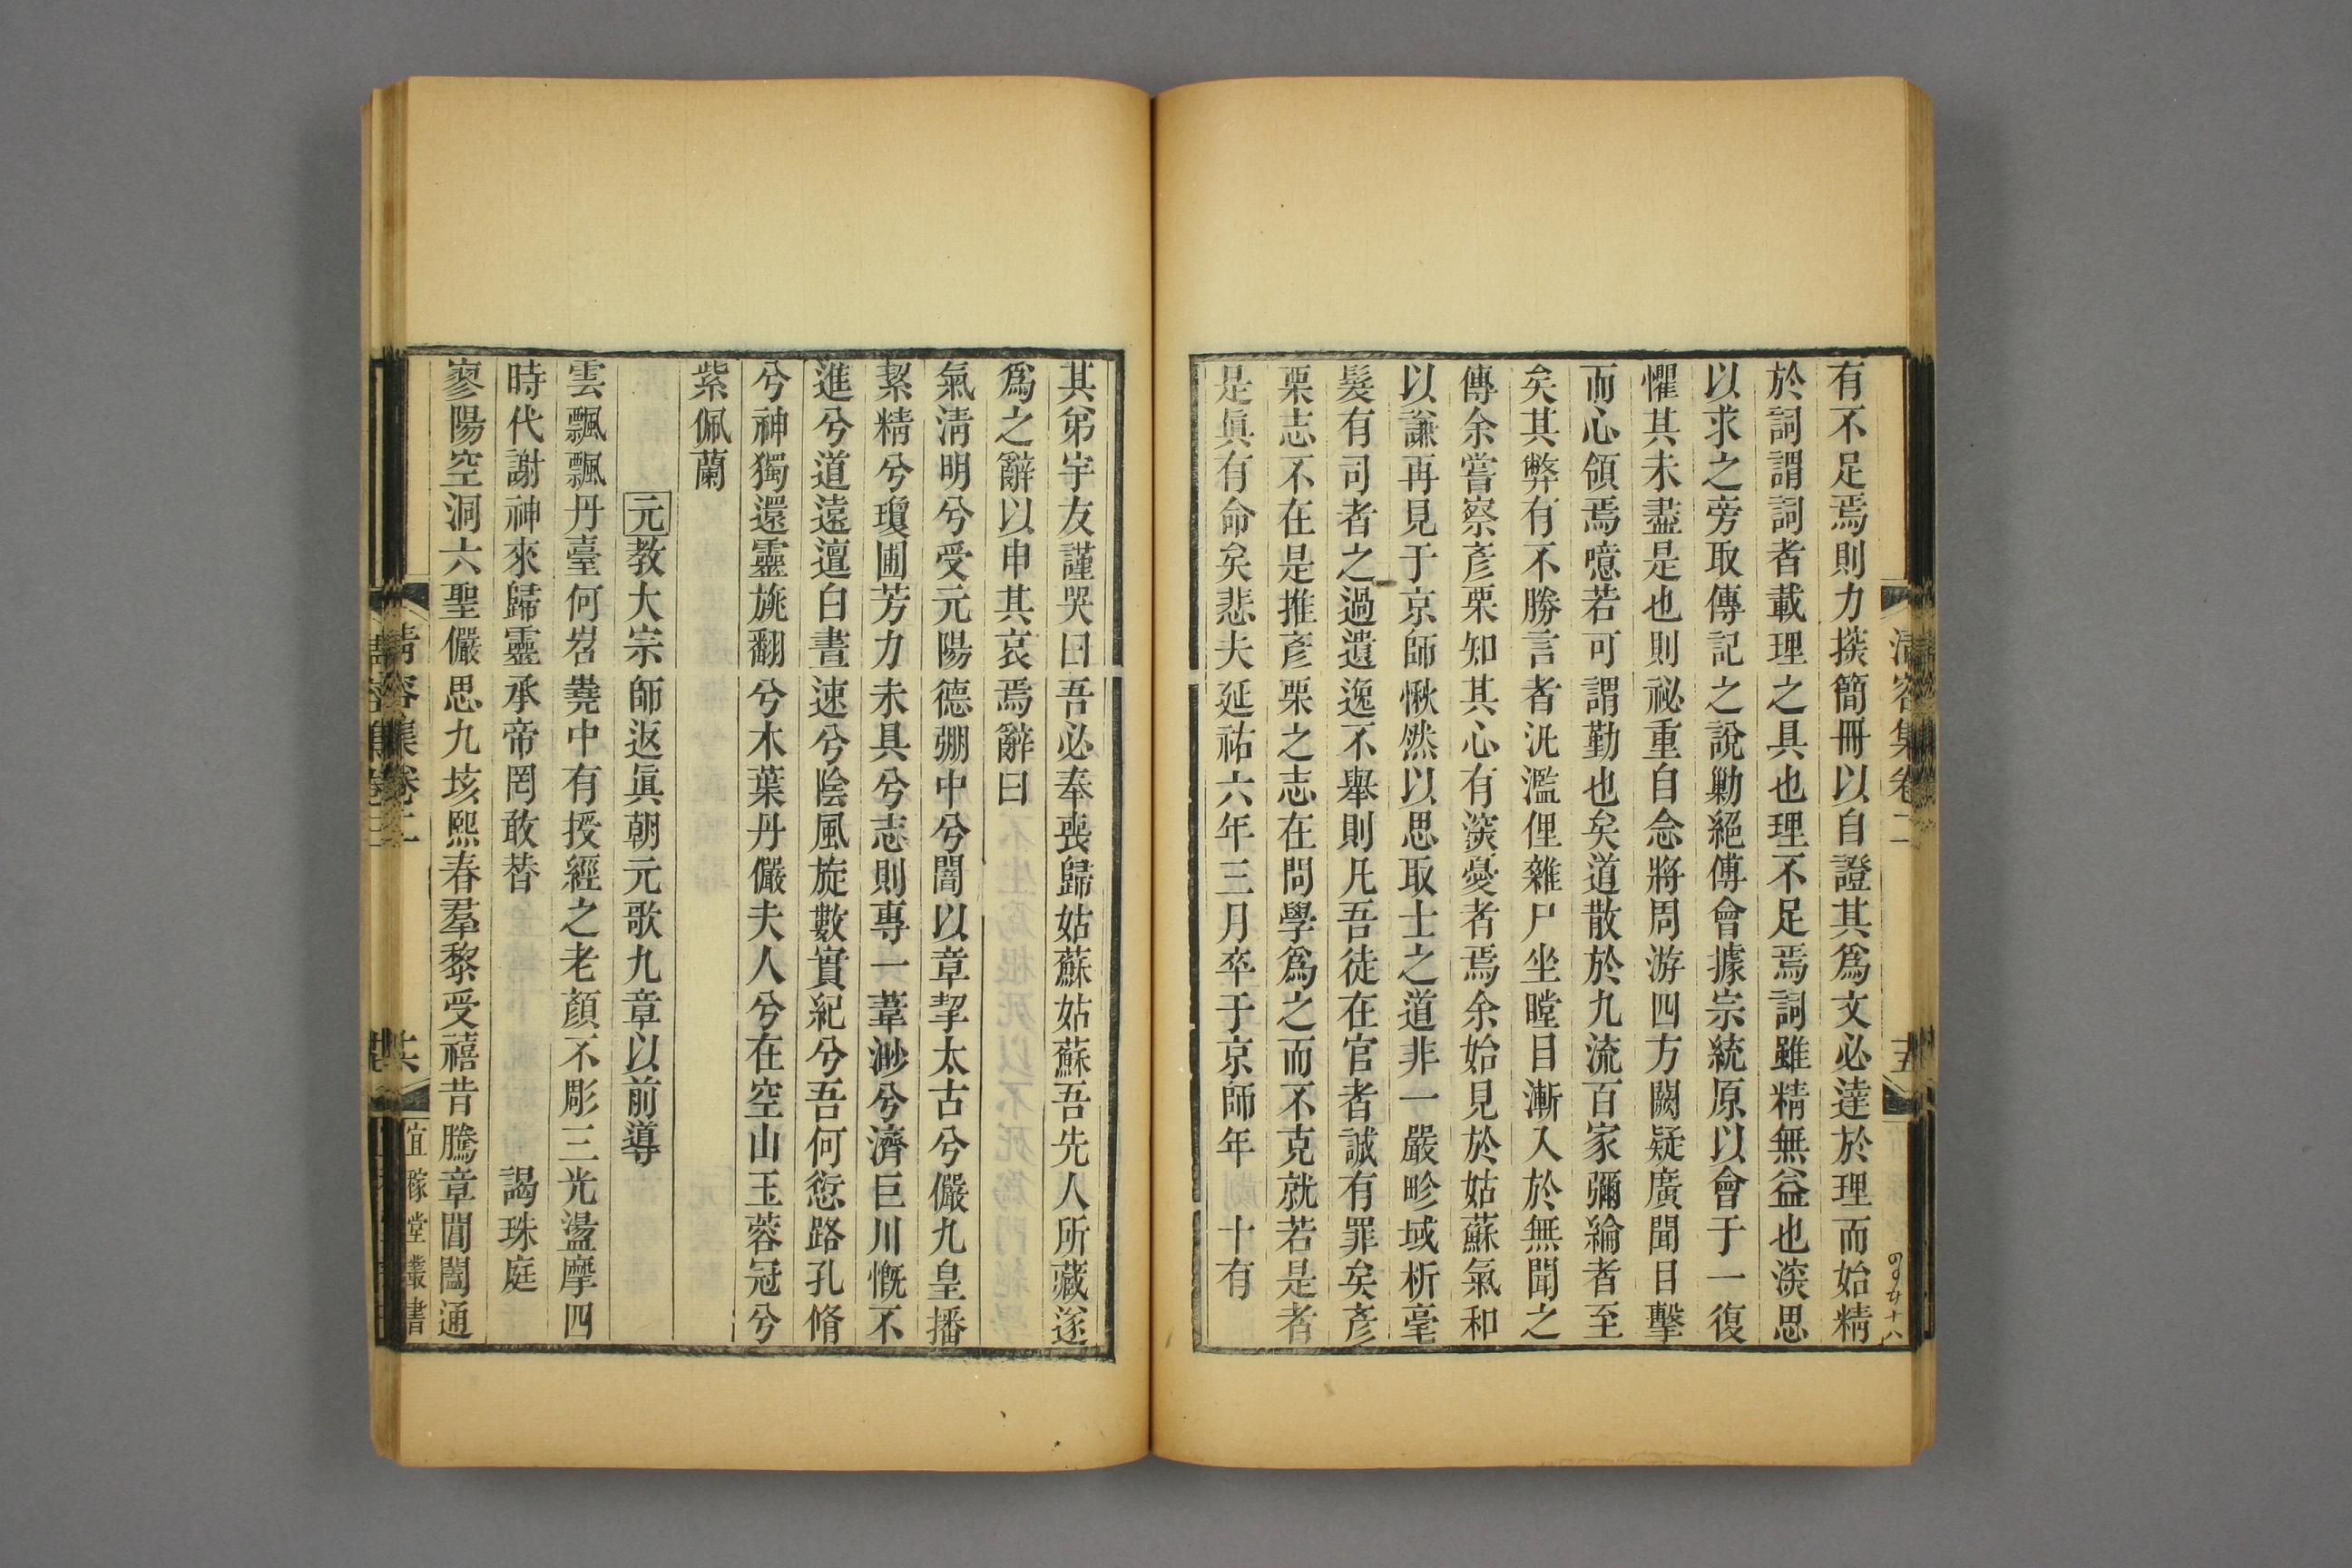 有不足焉則力摸簡冊以自證其爲文必達於理而始精
於詞謂詞者載理之具也理不足焉詞雖精無益也湥思
以求之旁取傳記之說勦絕傅會據宗統原以會于一復
懼其未盡是也則祕重自念將周游四方闕疑廣聞目擊
而心領焉噫若可謂勤也矣道散於九流百家彌綸者至
矣其弊有不勝言者汎濫俚雜尸坐瞠目漸入於無聞之
傳余嘗察彥栗知其心有湥憂者焉余始見於姑蘇氣和
以謙再見于京師愀然以思取士之道非一嚴畛域析毫
髮有司者之過遺逸不舉則凡吾徒在官者誠有罪矣彥
栗志不在是推彥栗之志在問學爲之而不克就若是者
是眞有命矣悲夫延祐六年三月卒于京師年 十有
清容集卷二
其弟宇友謹哭曰吾必奉喪歸姑蘇姑蘇吾先人所藏遂
爲之辭以申其哀焉辭曰
氣淸明兮受元陽德弸中兮闇以章挈太古兮儼九皇播
絜精兮瓊圃芳力未具兮志則專一葦渺兮濟巨川慨不
進兮道遠邅白晝速兮陰風旋數實紀兮吾何愆路孔脩
兮神獨還靈旐翻兮木葉丹儼夫人兮在空山玉蓉冠兮
紫佩蘭
元教大宗師返眞朝元歌九章以前導
雲飄飄丹臺何岧嶤中有授經之老顏不彫三光盪摩四
時代謝神來歸靈承帝罔敢替 謁珠庭
寥陽空洞六聖儼思九垓熙春羣黎受禧昔騰章閶闔通
清容集卷二
宜稼堂叢書